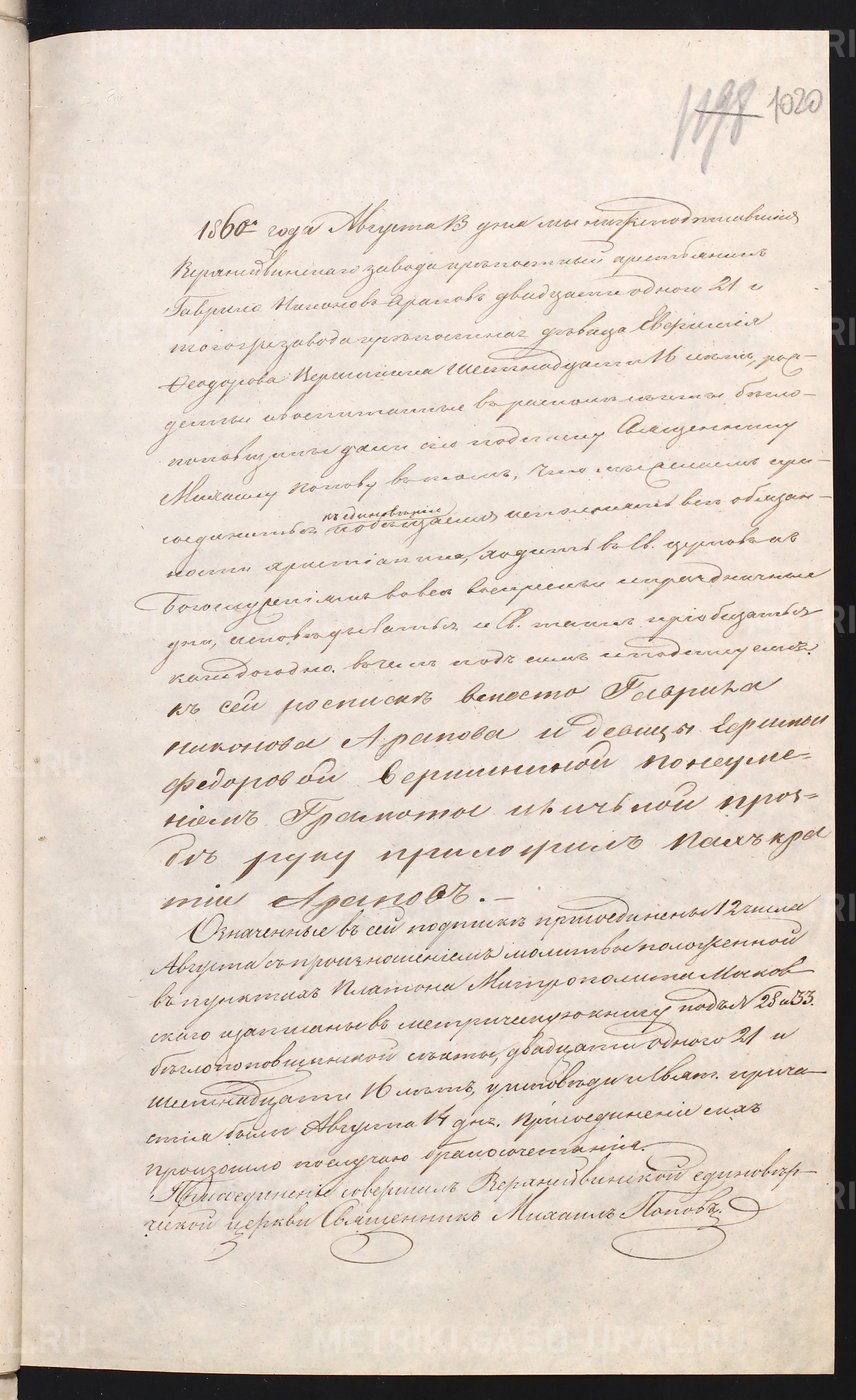 1198 1020
1860го года Августа 13 дня мы нижеподписавшіися
Верхнейвинскаго завода крѣпостный крестьянинъ
Гаврило Никоновъ Араповъ двадцати одного 21 и
тогоже завода крѣпостная дѣвица Евфимія
Ѳеодорова Вершинина шестнадцати 16 лѣтъ, рож-
денные и воспитанные въ раскольнической бѣгло-
поповщинѣ дали сію подписку Священнику
Михаилу Попову въ томъ, что мы желаемъ при-
соединиться къ единовѣрію и обѣщаемся исполнять всѣ обязан-
ности христіанина, ходить въ Св. церковь къ
Богослуженіямъ во всѣ воскресные и праздничные
дни, исповѣдываться и Св. таинъ пріобщаться
каждогодно. въ чемъ подъ симъ и подписуемся.
къ сей росписке вместо Гаврила
никонова Арапова и девицы Ефимьи
федоровой Вершининой понеуме-
ніемъ Грамоты ихъ личьной проз-
бѣ руку приложилъ Калъкра
тiи Араповъ.
Означенные въ сей подпискѣ присоединены 12 числа
Августа съ произношеніемъ молитвы положенной
въ пунктахъ Платона Митрополита Москов-
скаго и записаны въ метрическую книгу подъ N 28 и 33.
бѣглопоповщинской секты, двадцати одного 21 и
шестнадцати 16 лѣтъ, у исповѣди и Свят. прича-
стія были Августа 14 дня. Присоединеніе сихъ
произошло по случаю бракосочетанія.
Присоединеніе совершилъ Верхнейвинской единовѣр-
ческой церкви Священникъ Михаилъ Поповъ.
METRIKI.GASO-URAL.RU